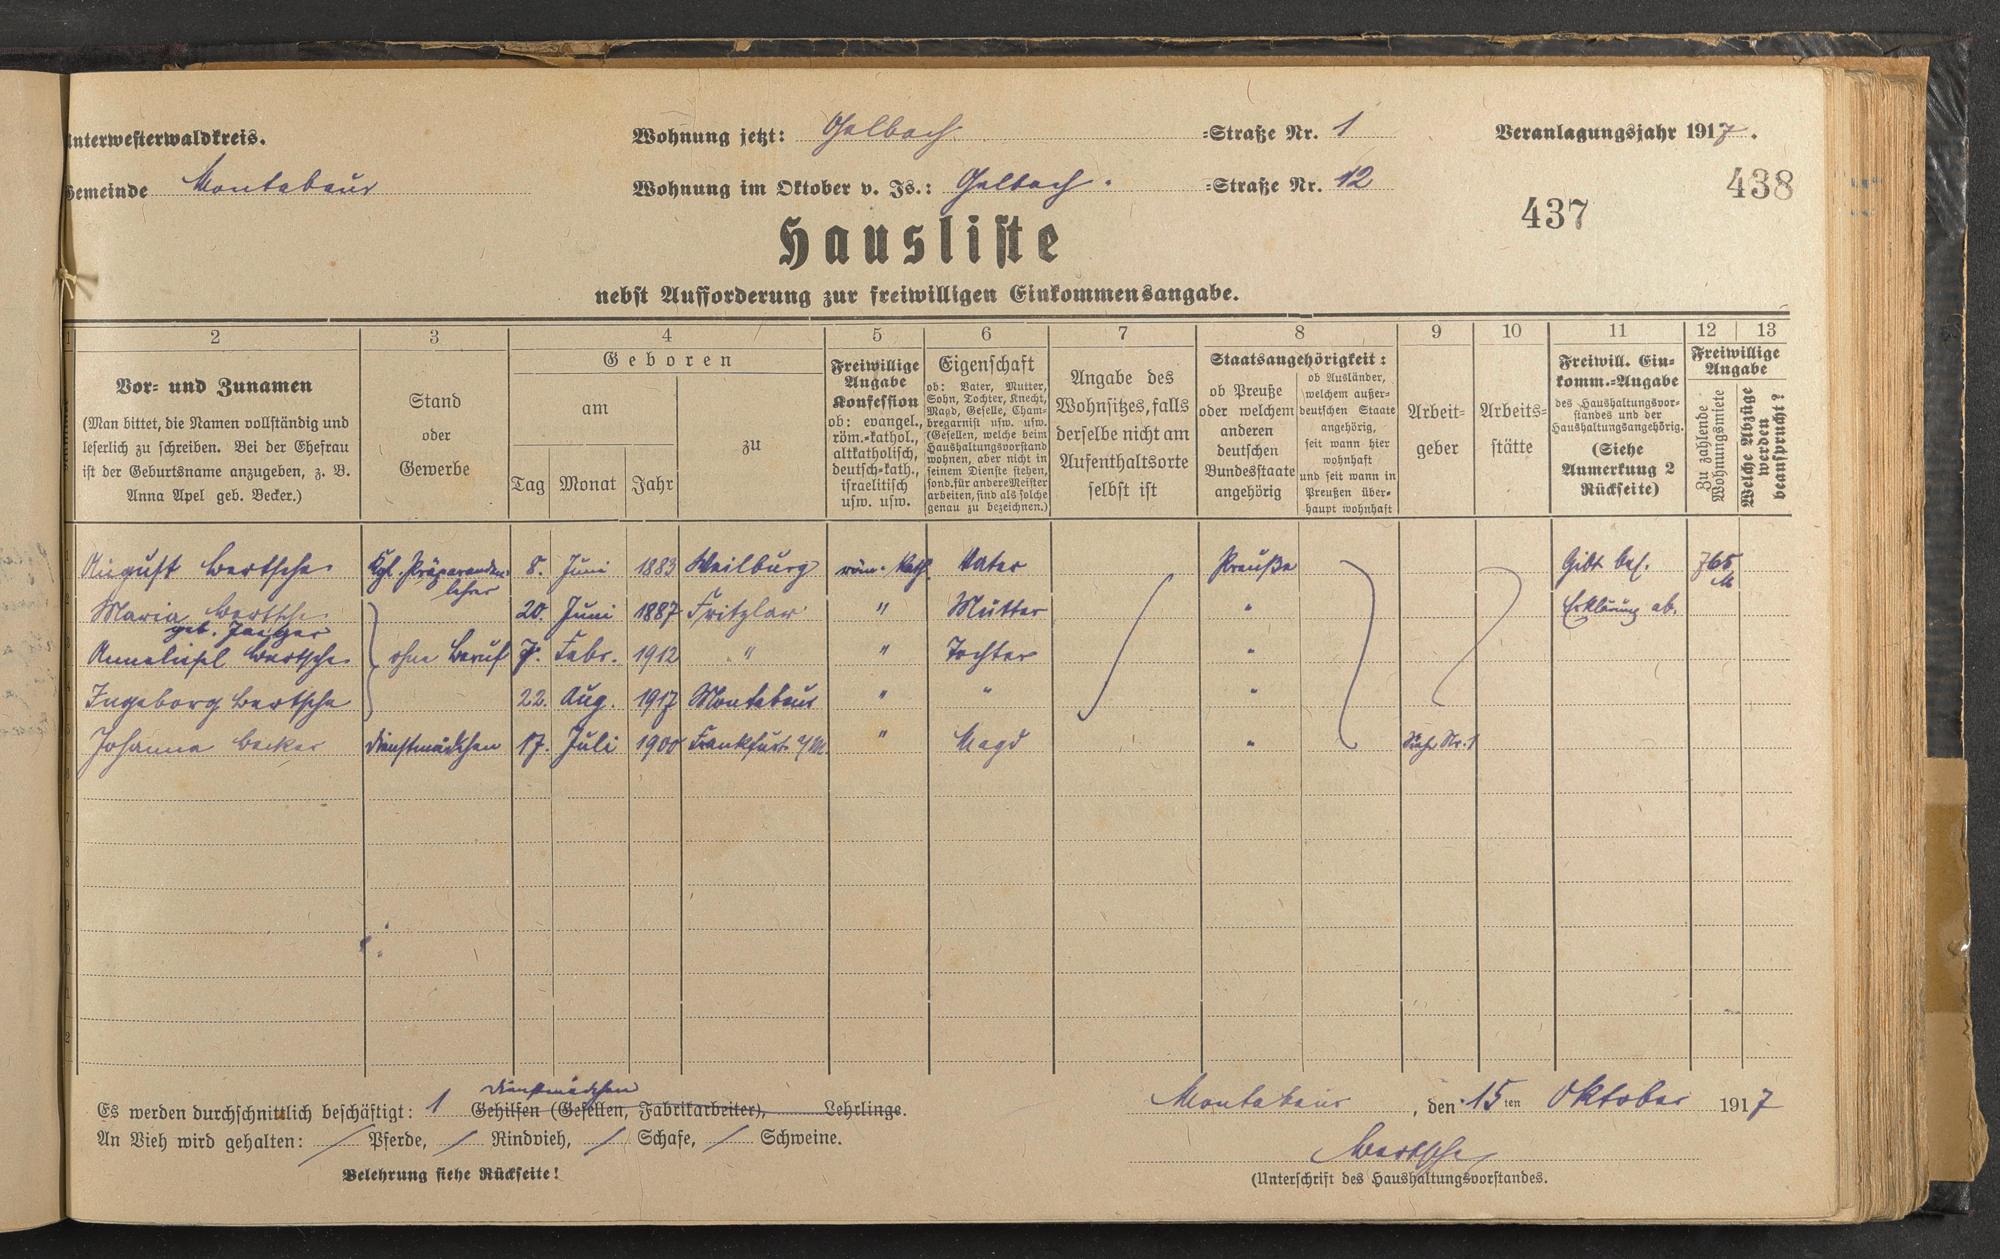 Unterwesterwaldkreis.
Wohnung jetzt: Gelbach -Straße Nr. 1
Veranlagungsjahr 1917.
Gemeinde Montabaur
Wohnung im Oktober v. Js.: Gelbach -Straße Nr. 12
437
438
Hausliste
nebst Aufforderung zur freiwilligen Einkommensangabe.
1 2 3 4 5 6 7 8 9 10 11 12 13
Vor- und Zunamen
(Man bittet, die Namen vollständig und
leserlich zu schreiben. Bei der Ehefrau
ist der Geburtsname anzugeben, z. B.
Anna Apel geb. Becker.)
Stand
oder
Gewerbe
Geboren
am
Tag Monat Jahr
zu
Freiwillige
Angabe
Konfession
ob: evangel.,
röm.-kathol.,
altkatholisch,
deutsch-kath.,
israelitisch
usw. usw.
Eigenschaft
ob: Vater, Mutter,
Sohn, Tochter, Knecht,
Magd, Geselle, Cham-
bregarnist usw. usw.
(Gesellen, welche beim
Haushaltungsvorstand
wohnen, aber nicht in
seinem Dienste stehen,
sond. für andere Meister
arbeiten, sind als solche
genau zu bezeichnen.)
Angabe des
Wohnsitzes, falls
derselbe nicht am
Aufenthaltsorte
selbst ist
Staatsangehörigkeit:
ob Preuße
oder welchem
anderen
deutschen
Bundesstaate
angehörig
ob Ausländer,
welchem außer-
deutschen Staate
angehörig,
seit wann hier
wohnhaft
und seit wann in
Preußen über-
haupt wohnhaft
Arbeit-
geber
Arbeits-
stätte
Freiwill. Ein-
komm.-Angabe
des Haushaltungsvor-
standes und der
Haushaltungsangehörig.
(Siehe
Anmerkung 2
Rückseite)
Freiwillige
Angabe
Zu zahlende
Wohnungsmiete
Welche Abzüge
werden
beansprucht?
August Bertsche Kgl. Präparanden- 8. Juni 1883 Weilburg röm. kath. Vater Preuße Gibt bes. 765
lehrer M
Maria Bertsche 20. Juni 1887 Fritzlar " Mutter " Erklärung ab.
geb. Jaeger
Anneliesel Bertsche ohne Beruf 7. Febr. 1912 " " Tochter "
Ingeborg Bertsche 22. Aug. 1917 Montabaur " " "
Johanna Becker Dienstmädchen 17. Juli 1900 Frankfurt a/M. " Magd " Siehe Nr. 1
7
8
9
Dienstmädchen
Es werden durchschnittlich beschäftigt: 1 Gehilfen (Gesellen, Fabrikarbeiter), Lehrlinge.
An Vieh wird gehalten: / Pferde, / Rindvieh, / Schafe, / Schweine.
Belehrung siehe Rückseite!
Montabaur, den 15ten Oktober 1917
Bertsche
(Unterschrift des Haushaltungsvorstandes.